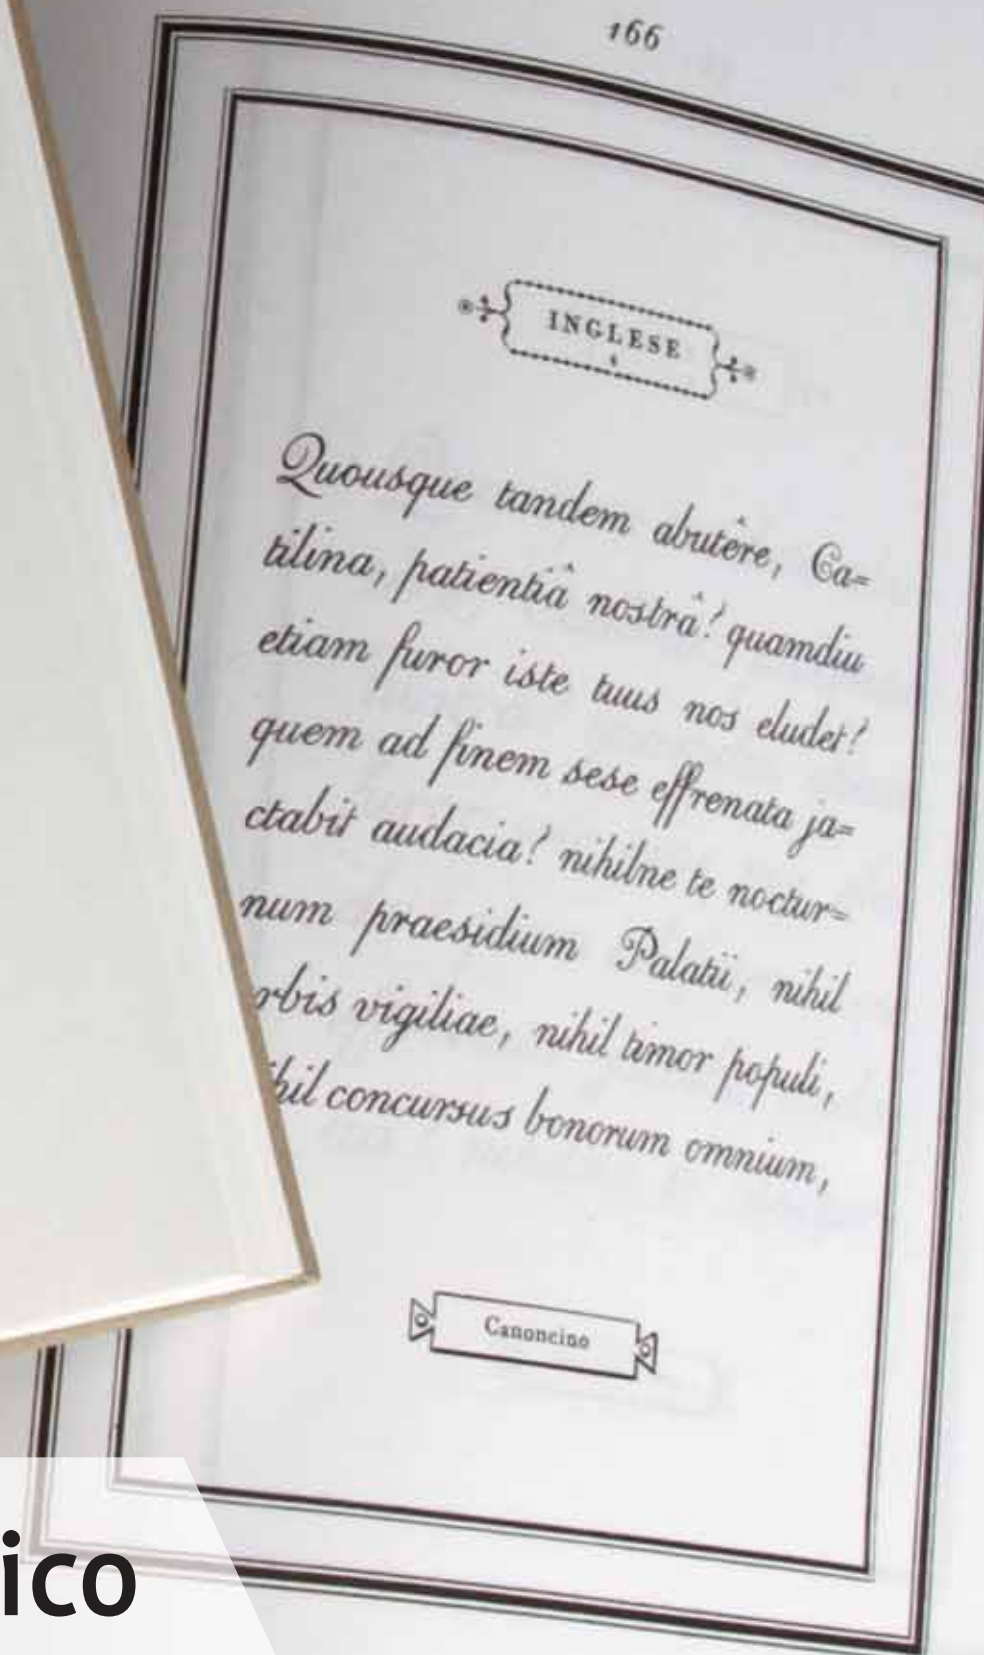 166
INGLESE
4
Quousque tandem abutêre, Ca=
tilina, patientiâ nostrâ? quamdiu
etiam furor iste tuus nos eludet?
quem ad finem sese effrenata ja=
ctabit audacia? nihilne te noctur=
num praesidium Palatii, nihil
rbis vigiliae, nihil timor populi,
hil concursus bonorum omnium,
Canoncino
ico